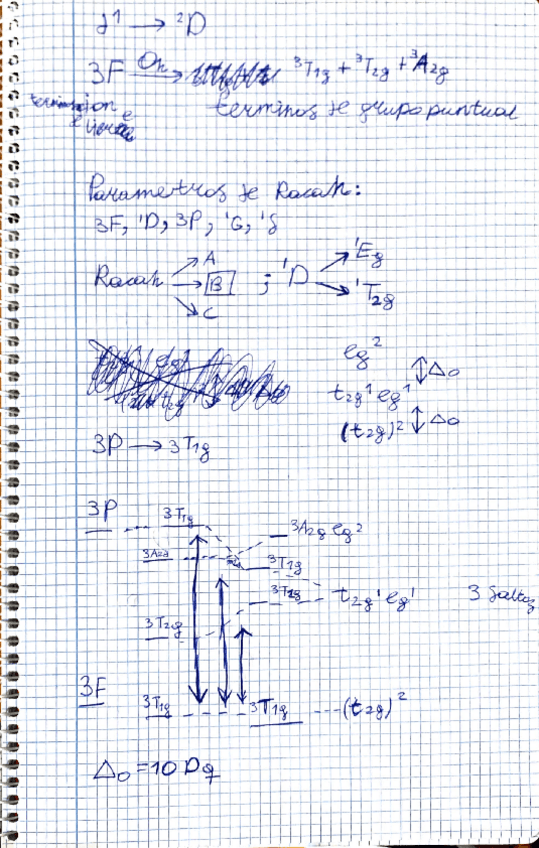 d¹ → ²D
3F Oh → ³T₁g + ³T₂g + ³A₂g
terminos de grupo puntual
Parametros de Racah:
3F, ¹D, 3P, ¹G, ¹S
Racah → A
→ B ; ¹D → ¹Eg
→ C → ¹T₂g
eg²
↕ Δo
t₂g¹ eg¹
↕ Δo
(t₂g)²
3P → 3T₁g
3P 3T₁g
³A₂g eg²
3A₂g 3T₁g
3T₂g t₂g¹ eg¹ 3 saltos
3T₂g
3F
3T₁g 3T₁g (t₂g)²
Δo = 10 Dq